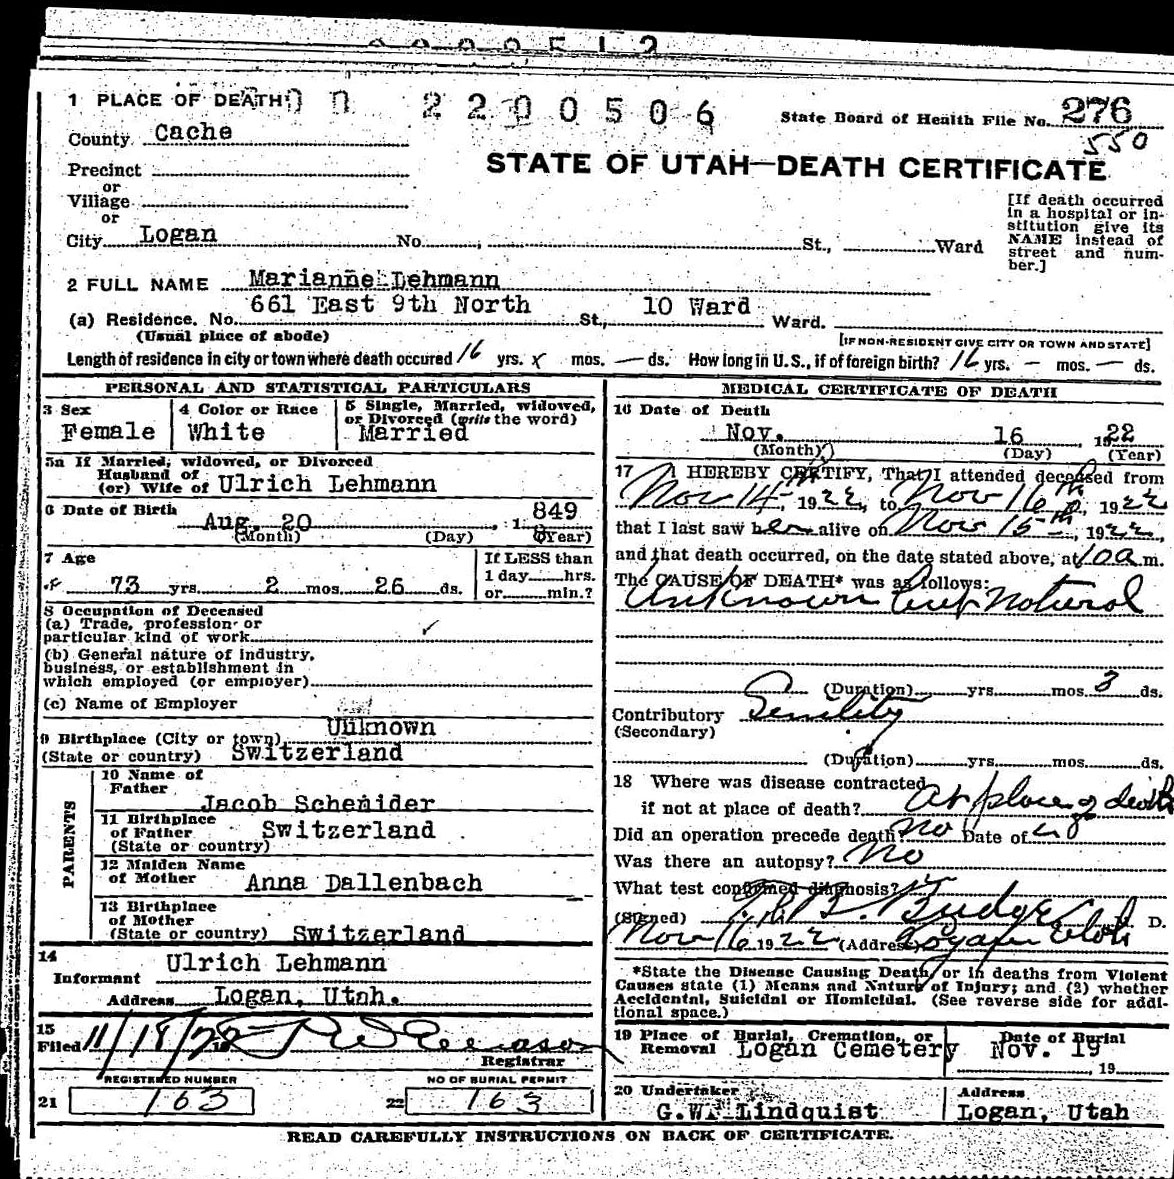 1 PLACE OF DEATH
2200506
State Board of Health File No. 276
550
County Cache
STATE OF UTAH—DEATH CERTIFICATE
Precinct
or
Village
or
City Logan No. , St., Ward
[If death occurred in a hospital or institution give its NAME instead of street and number.]
2 FULL NAME Marianne Lehmann
661 East 9th North 10 Ward
(a) Residence. No. St., Ward.
(Usual place of abode) [IF NON-RESIDENT GIVE CITY OR TOWN AND STATE]
Length of residence in city or town where death occured 16 yrs. x mos. — ds. How long in U.S., if of foreign birth? 16 yrs. — mos. — ds.
PERSONAL AND STATISTICAL PARTICULARS
3 Sex 4 Color or Race 5 Single, Married, widowed,
or Divorced (write the word)
Female White Married
5a If Married, widowed, or Divorced
Husband of
(or) Wife of Ulrich Lehmann
6 Date of Birth
Aug. 20 , 1849
(Month) (Day) (Year)
7 Age If LESS than
1 day hrs.
73 yrs. 2 mos. 26 ds. or min.?
8 Occupation of Deceased
(a) Trade, profession or
particular kind of work
(b) General nature of industry,
business, or establishment in
which employed (or employer)
(c) Name of Employer
Unknown
9 Birthplace (City or town)
(State or country) Switzerland
PARENTS
10 Name of
Father
Jacob Schemider
11 Birthplace
of Father Switzerland
(State or country)
12 Maiden Name
of Mother Anna Dallenbach
13 Birthplace
of Mother
(State or country) Switzerland
14 Ulrich Lehmann
Informant
Address Logan, Utah.
15
Filed 11/18/22
Registrar
REGISTERED NUMBER NO OF BURIAL PERMIT
21 163 22 163
MEDICAL CERTIFICATE OF DEATH
16 Date of Death
Nov. 16 , 1922
(Month) (Day) (Year)
17 I HEREBY CERTIFY, That I attended deceased from
Nov 14th, 1922, to Nov 16th, 1922
that I last saw her alive on Nov 15th, 1922,
and that death occurred, on the date stated above, at 10 a m.
The CAUSE OF DEATH* was as follows:
Unknown but Natural
(Duration) yrs. mos. 3 ds.
Contributory Senility
(Secondary)
(Duration) yrs. mos. ds.
18 Where was disease contracted
if not at place of death? At place of death
Did an operation precede death? No Date of
Was there an autopsy? No
What test confirmed diagnosis?
(Signed) Budge M. D.
Nov 16 1922 (Address) Logan Utah
*State the Disease Causing Death, or in deaths from Violent
Causes state (1) Means and Nature of Injury; and (2) whether
Accidental, Suicidal or Homicidal. (See reverse side for addi-
tional space.)
19 Place of Burial, Cremation, or Date of Burial
Removal Logan Cemetery Nov. 19
, 19
20 Undertaker Address
G.W. Lindquist Logan, Utah
READ CAREFULLY INSTRUCTIONS ON BACK OF CERTIFICATE.